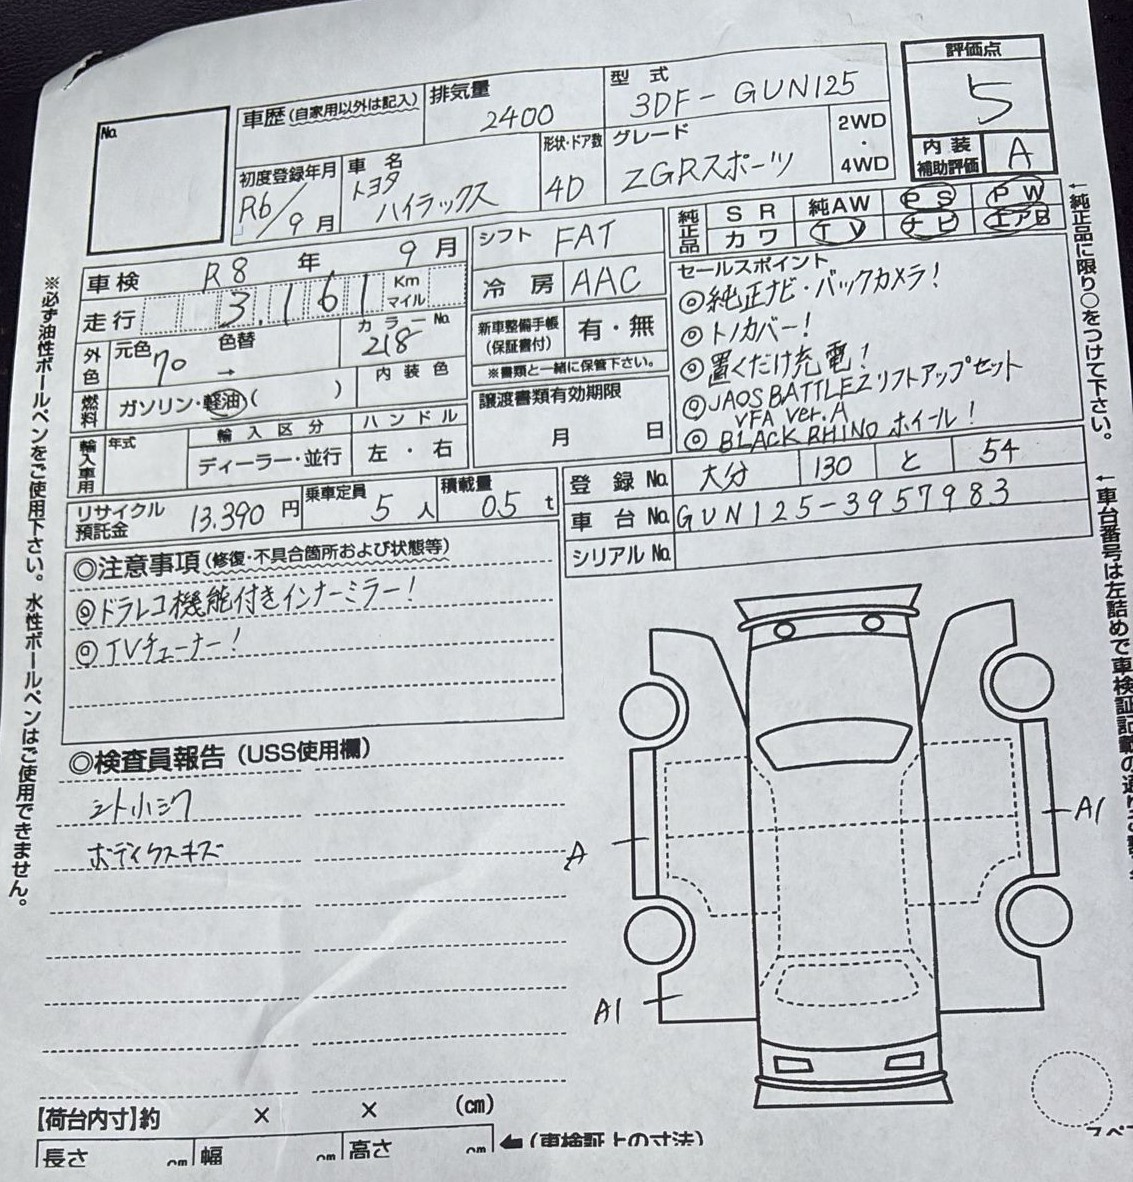 No.
車歴(自家用以外は記入)
排気量
2400
型式
3DF-GUN125
評価点
5
内装補助評価
A
初度登録年月
R6/9月
車名
トヨタ
ハイラックス
形状・ドア数
4D
グレード
ZGRスポーツ
2WD
・
4WD
車検 R8年9月
シフト FAT
純正品
SR 純AW PS PW
カワ TV ナビ エアB
走行 3,161 Km マイル
冷房 AAC
セールスポイント
◎純正ナビ・バックカメラ!
◎トノカバー!
◎置くだけ充電!
◎JAOS BATTLEZリフトアップセット
VFA ver.A
◎BLACK RHINO ホイール!
外色
元色 70 色替 →
カラーNo.
218
新車整備手帳
(保証書付)
有・無
※書類と一緒に保管下さい。
燃料
ガソリン・軽油( )
内装色
譲渡書類有効期限
月 日
輸入車用
年式
輸入区分
ディーラー・並行
ハンドル
左・右
リサイクル預託金 13,390円
乗車定員 5人
積載量 0.5t
登録No. 大分 130 と 54
車台No. GUN125-3957983
シリアルNo.
◎注意事項(修復・不具合箇所および状態等)
◎ドラレコ機能付きインナーミラー!
◎TVチューナー!
◎検査員報告(USS使用欄)
シト小シワ
ボディウスキズ
A
A1
A1
【荷台内寸】約 × × (cm)
長さ cm 幅 cm 高さ cm
←(車検証上の寸法)
スペ
※必ず油性ボールペンをご使用下さい。水性ボールペンはご使用できません。
↑純正品に限り○をつけて下さい。
↑車台番号は左詰めで車検証記載の通り